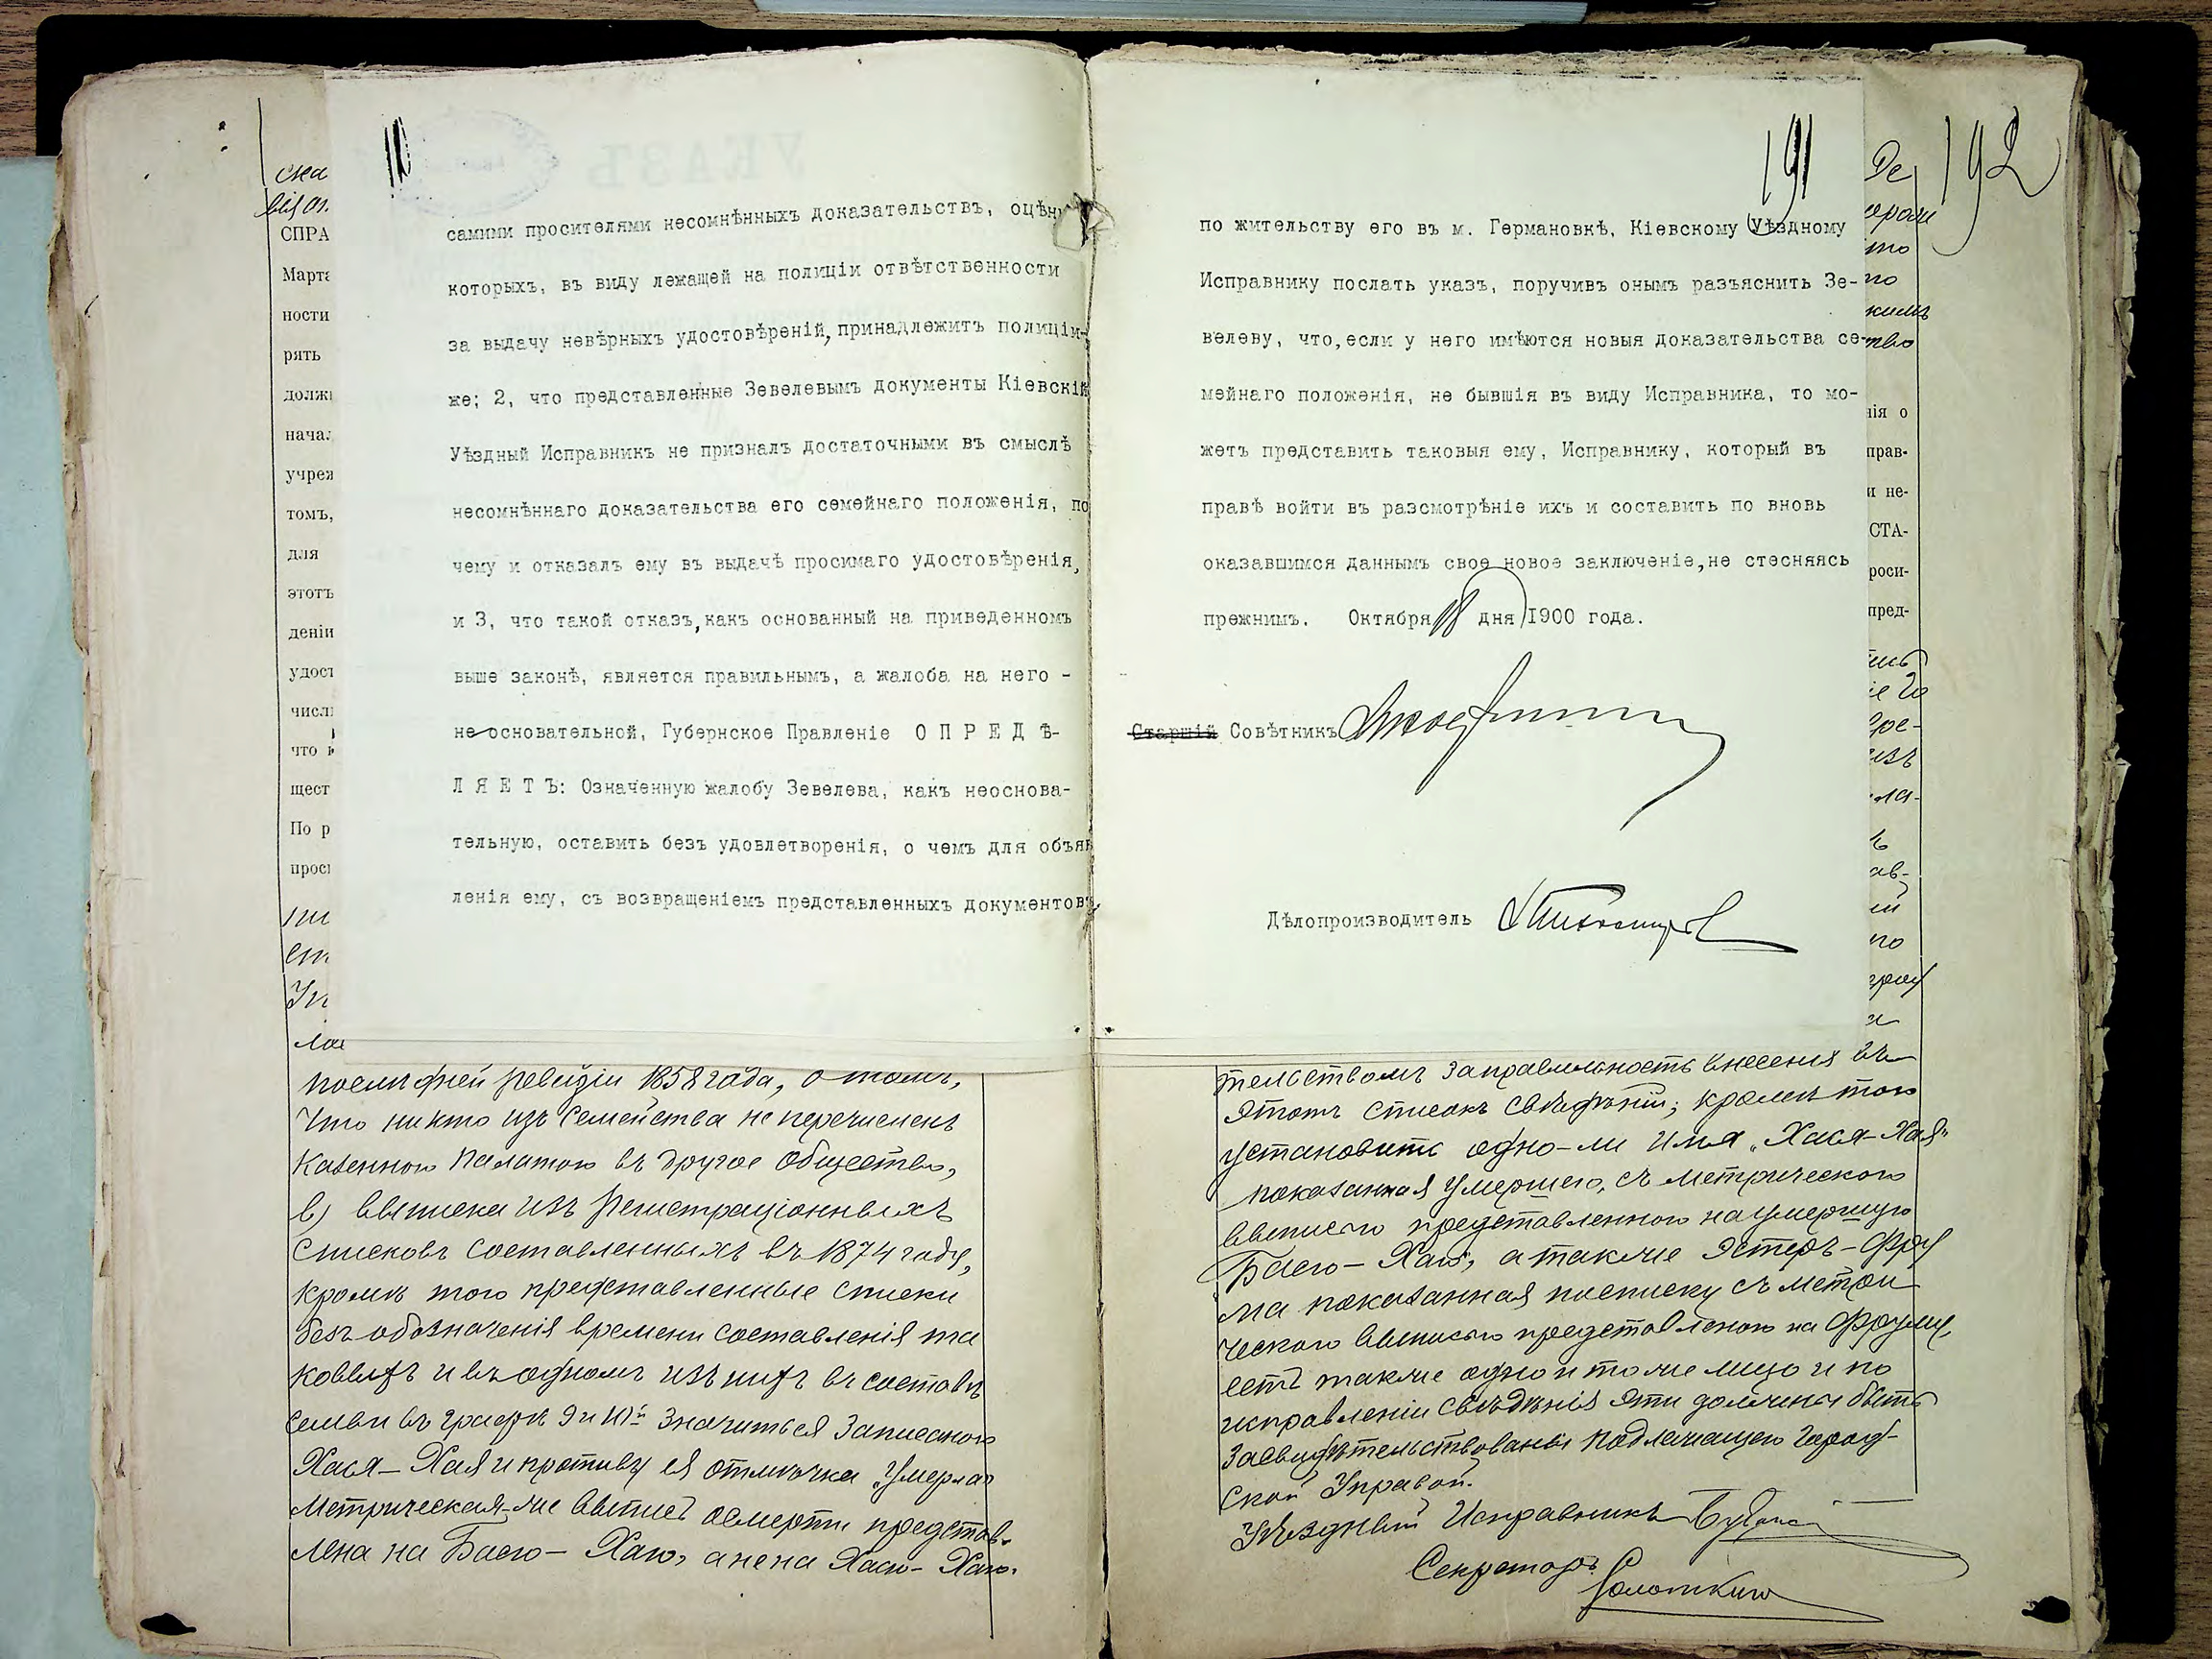 191
192
самими просителями несомнѣнныхъ доказательствъ, оцѣн
которыхъ, въ виду лежащей на полиціи отвѣтственности
за выдачу невѣрныхъ удостовѣреній, принадлежитъ полиціи-
же; 2, что представленные Зевелевымъ документы Кіевскій
Уѣздный Исправникъ не призналъ достаточными въ смыслѣ
несомнѣннаго доказательства его семейнаго положенія, по
чему и отказалъ ему въ выдачѣ просимаго удостовѣренія,
и 3, что такой отказъ, какъ основанный на приведенномъ
выше законѣ, является правильнымъ, а жалоба на него -
не основательной, Губернское Правленіе О П Р Е Д Ѣ-
Л Я Е Т Ъ: Означенную жалобу Зевелева, какъ неоснова-
тельную, оставить безъ удовлетворенія, о чемъ для объяв
ленія ему, съ возвращеніемъ представленныхъ документовъ,
по жительству его въ м. Германовкѣ, Кіевскому Уѣздному
Исправнику послать указъ, поручивъ онымъ разъяснить Зе-
велеву, что, если у него имѣются новыя доказательства се-
мейнаго положенія, не бывшія въ виду Исправника, то мо-
жетъ представить таковыя ему, Исправнику, который въ
правѣ войти въ разсмотрѣніе ихъ и составить по вновь
оказавшимся даннымъ свое новое заключеніе, не стесняясь
прежнимъ. Октября 18 дня 1900 года.
Старшій Совѣтникъ
Дѣлопроизводитель
СПРА
Марта
ности
рять
долж
начал
учреж
томъ,
для
этотъ
деніи
удост
числ
что
щест
По р
прос
нія о
прав-
и не-
СТА-
роси-
пред-
послѣдней ревизіи 1858 года, о томъ,
что никто изъ семейства не перечисленъ
Казенною Палатою въ другое Общество,
в) выписка изъ регистраціонныхъ
списковъ составленныхъ въ 1874 году,
кромѣ того представленные списки
безъ обозначенія времени составленія та
ковыхъ и въ одномъ изъ нихъ въ составѣ
семьи въ графѣ 9 и 10й значиться записаною
Хася-Хая и противу ея отмѣтка „умерла"
Метрическая-же выпись о смерти представ-
лена на Басю-Хаю, а не на Хасю-Хаю.
тельствомъ за правильность внесенія въ
этотъ списокъ свѣдѣній; кромѣ того
установить одно-ли имя „Хася-Хая"
показанная умершею, съ метрическою
выписью представленною на умершую
Басю-Хаю, а также Эстеръ-Фру
ма показанная по списку съ метри
ческою выписью представленою на Фруму,
есть также одно и то же лицо и по
исправленіи свѣдѣнія эти должны быть
засвидѣтельствованы подлежащею Город-
ской Управой.
Уѣздный Исправникъ
Секретарь